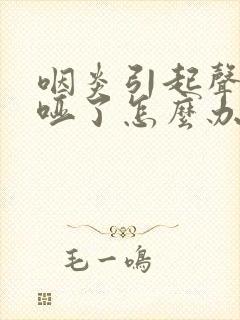 咽炎引起聲
啞了怎麼办
毛一鳴